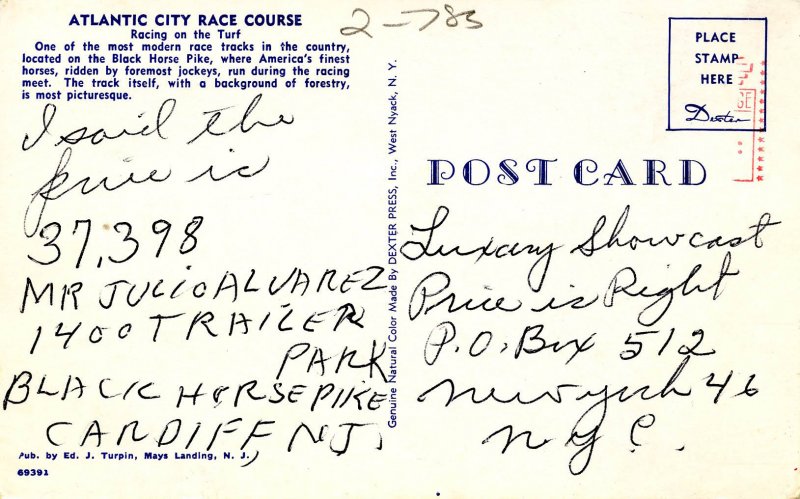 ATLANTIC CITY RACE COURSE
Racing on the Turf
One of the most modern race tracks in the country,
located on the Black Horse Pike, where America's finest
horses, ridden by foremost jockeys, run during the racing
meet. The track itself, with a background of forestry,
is most picturesque.
2-783
I said the
price is
37,398
MR JULIO ALVAREZ
1400 TRAILER
PARK
BLACK HORSE PIKE
CARDIFF, NJ.
Pub. by Ed. J. Turpin, Mays Landing, N. J.
69391
Genuine Natural Color Made By DEXTER PRESS, Inc., West Nyack, N. Y.
PLACE
STAMP
HERE
Dexter
POST CARD
Luxary Showcast
Price is Right
P.O. Box 512
New york 46
N Y C.